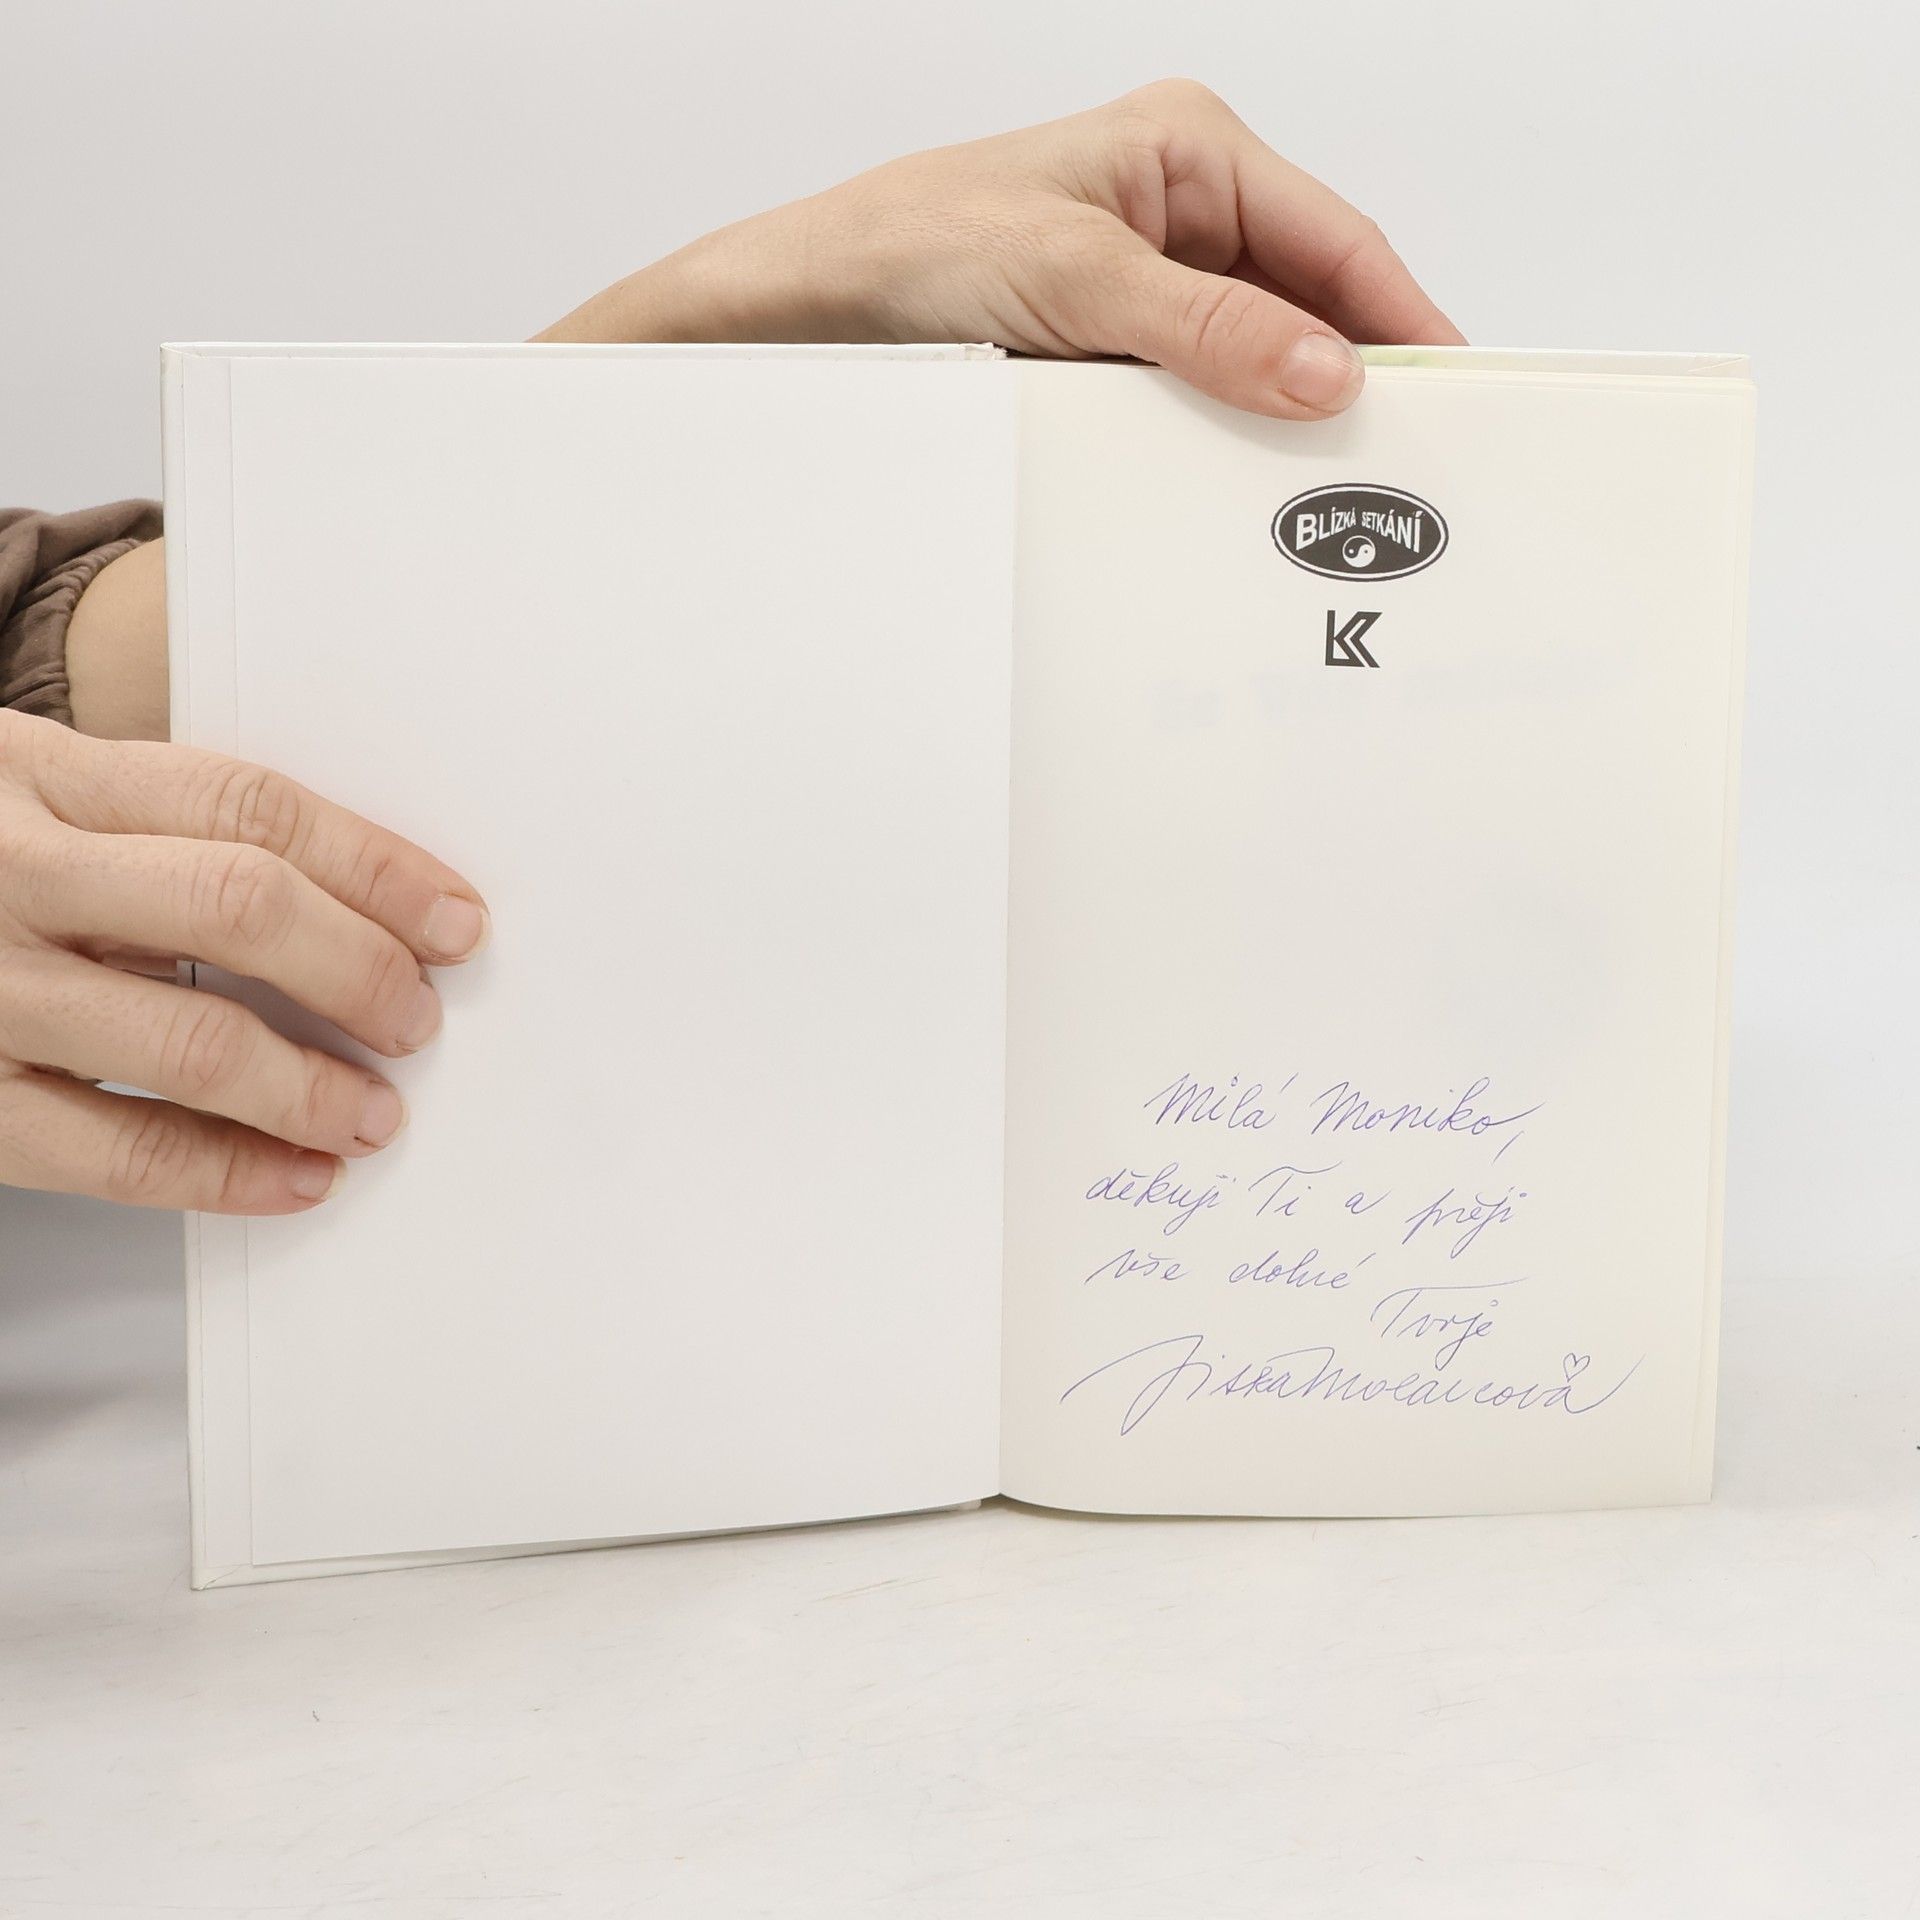 BLÍZKÁ SETKÁNÍ
Milá Moniko,
děkuji Ti a přeji
vše dobré
Tvoje
Jiška Molavcová